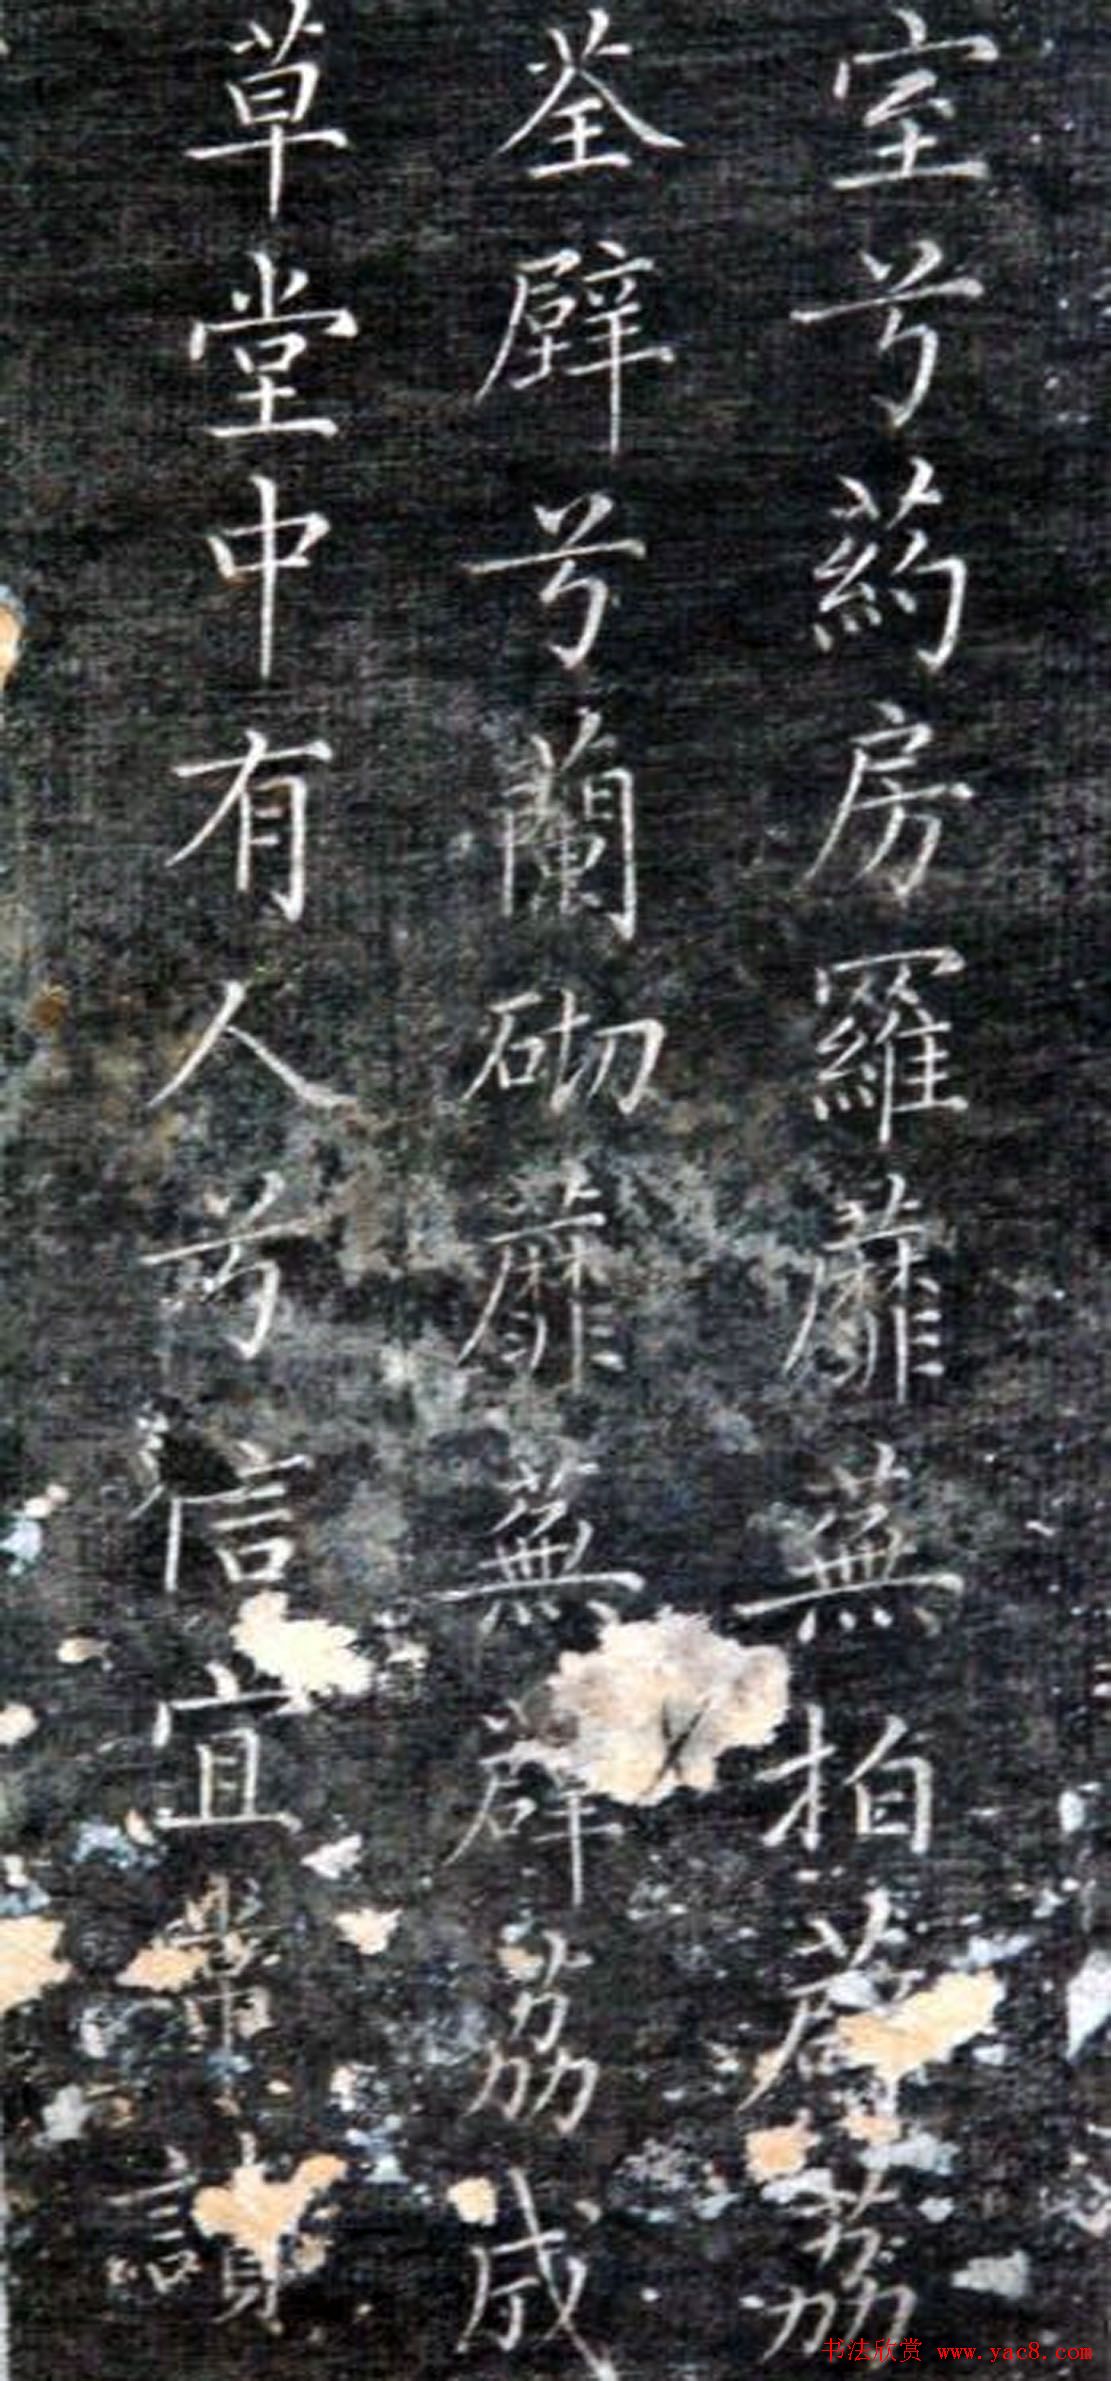 室兮葯房羅蘼蕪拍薜茘
荃壁兮蘭砌蘼蕪薜茘成
草堂中有人兮信宜常讀
书法欣赏 www.yac8.com